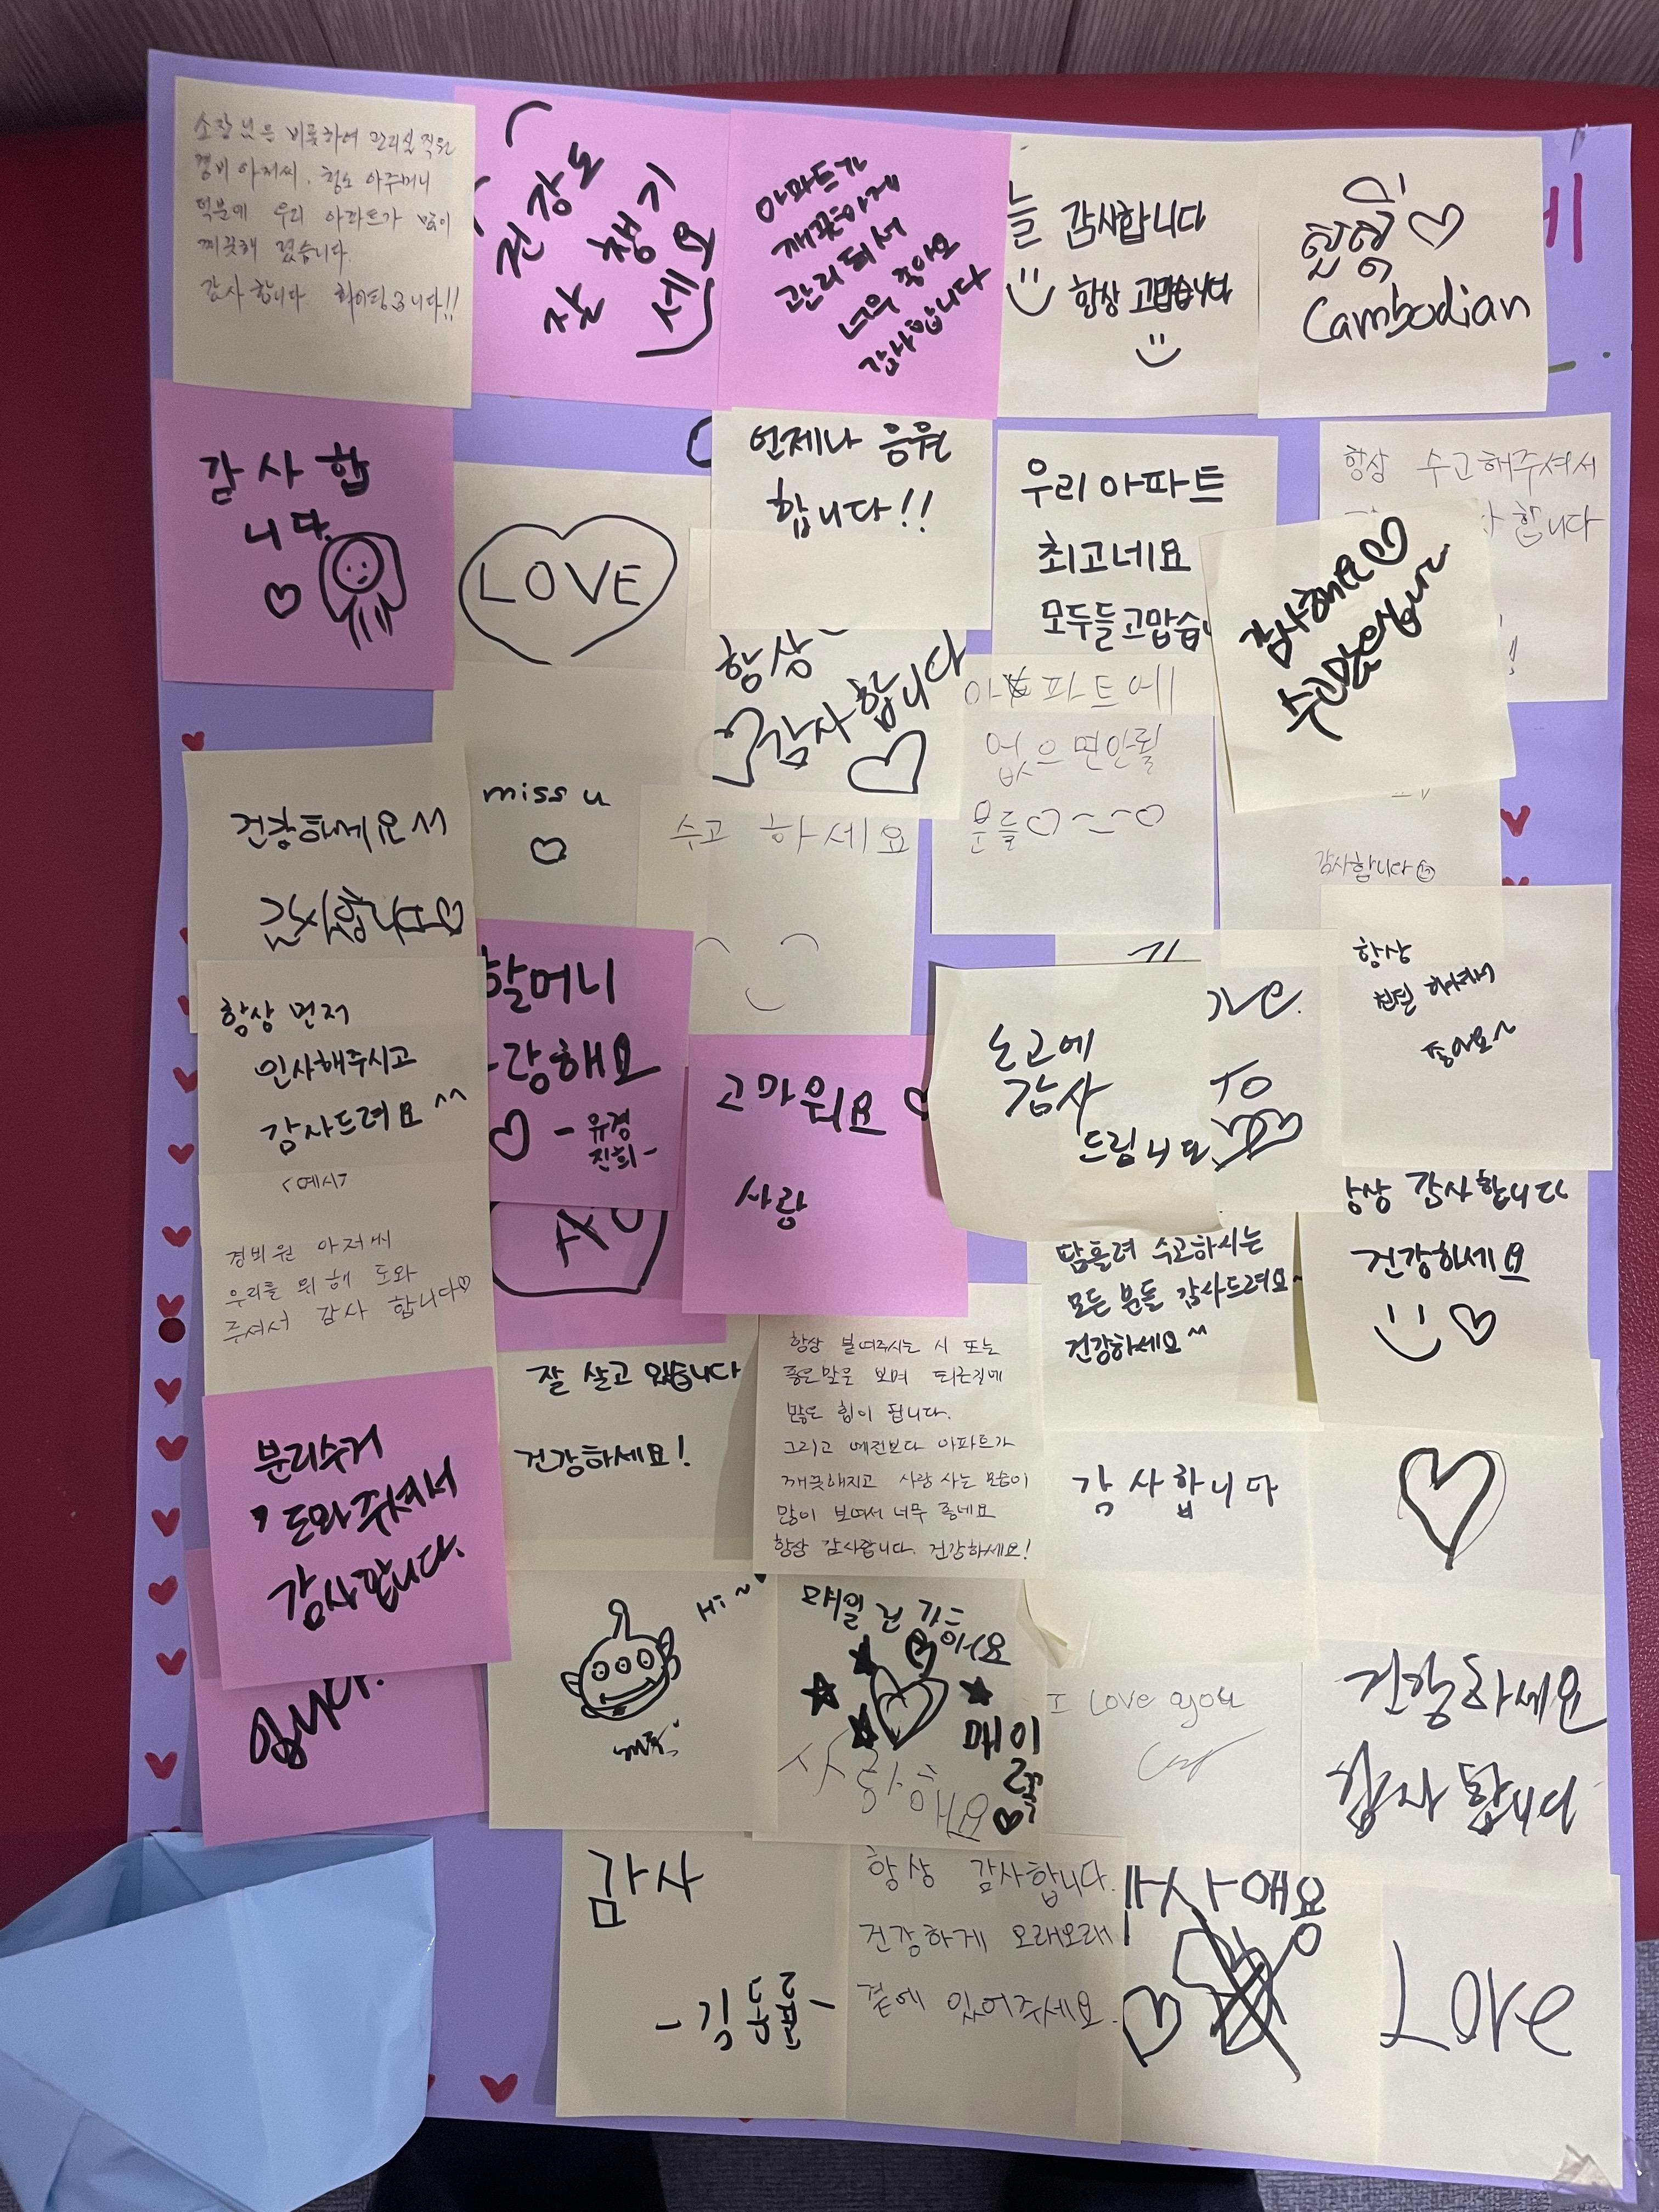 소장님을 비롯하여 관리실 직원
경비 아저씨, 청소 아주머니
덕분에 우리 아파트가 많이
깨끗해 졌습니다.
감사 합니다 화이팅입니다!!
건강도
잘 챙기
세요
아파트가
깨끗하게
관리되서
너무 좋아요
감사합니다
늘 감사합니다
항상 고맙습니다
សួស្តី
Cambodian
감사합
니다.
LOVE
언제나 응원
합니다!!
우리 아파트
최고네요
모두들 고맙습
항상 수고해주셔서
합니다
감사해요
수고많으십니다
항상
감사합니다
아파트에
없으면안될
분들
건강하세요^^
감사합니다
miss u
수고 하세요
감사합니다
항상 먼저
인사해주시고
감사드려요^^
<예시>
할머니
사랑해요
-유경
진희-
고마워요
사랑
노고에
감사
드립니다
To
항상
친절하셔서
좋아요~
경비원 아저씨
우리를 위해 도와
주셔서 감사 합니다
땀흘려 수고하시는
모든 분들 감사드려요~
건강하세요^^
항상 감사합니다
건강하세요
분리수거
도와주셔서
감사합니다.
잘 살고 있습니다
건강하세요!
항상 붙여주시는 시 또는
좋은말을 보며 퇴근길에
많은 힘이 됩니다.
그리고 예전보다 아파트가
깨끗해지고 사람 사는 모습이
많이 보여서 너무 좋네요
항상 감사합니다. 건강하세요!
감사합니다
Hi~
매일
사랑해요
I Love you
건강하세요
감사 합니다
입니다.
감사
항상 감사합니다.
건강하게 오래오래
곁에 있어주세요.
Love